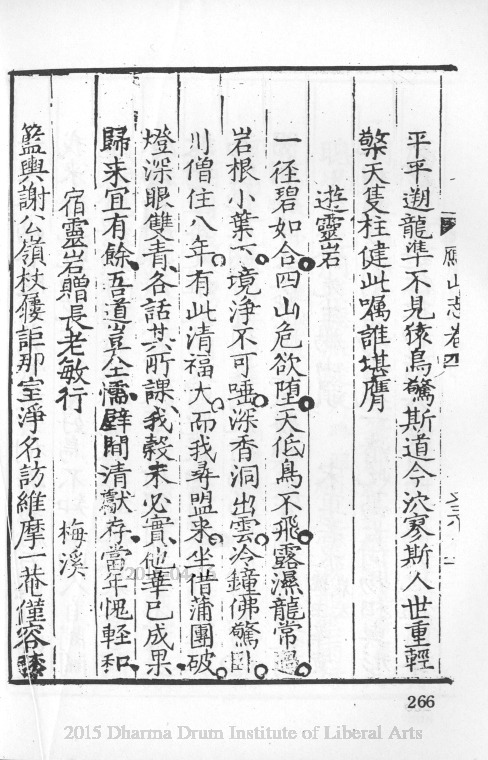 鴈山志卷四
平平遡龍準不見猿鳥驚斯道今泬寥斯人世重輕
擎天隻柱健此嘱誰堪膺
遊靈岩
一徑碧如合四山危欲堕天低鳥不飛露濕龍常過
岩根小葉下境淨不可唾深香洞出雲冷鐘佛驚卧
川僧住八年有此清福大而我尋盟来坐借蒲團破
燈深眼雙青各話其所課我穀未必實他華已成果
歸来宜有餘吾道豈全懦壁間清獻存當年愧輕和
宿靈岩贈長老敏行 梅溪
籃輿謝公嶺杖屨詎那室淨名訪維摩一菴僅容膝
266
2015 Dharma Drum Institute of Liberal Arts